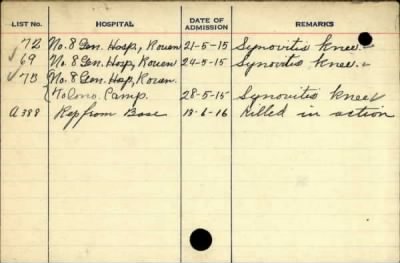 LIST No. HOSPITAL DATE OF ADMISSION REMARKS
72 No. 8 Gen. Hosp., Rouen 21-5-15 Synovitis knee.
69 No. 8 Gen. Hosp, Rouen 24-5-15 Synovitis knee.
73 No. 8 Gen. Hosp, Rouen.
To Conv. Camp. 28-5-15 Synovitis knee
A 388 Rep from Base 13-6-16 Killed in action